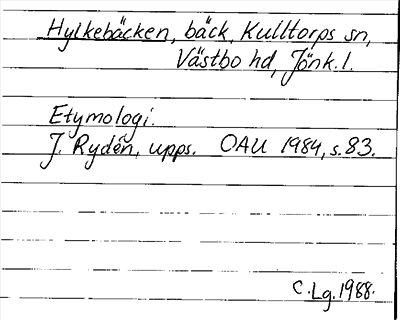 Hylkebäcken, bäck, Kulltorps sn,
Västbo hd, Jönk. l.
Etymologi.
J. Rydén, upps. OAU 1984, s. 83.
C. Lg. 1988.